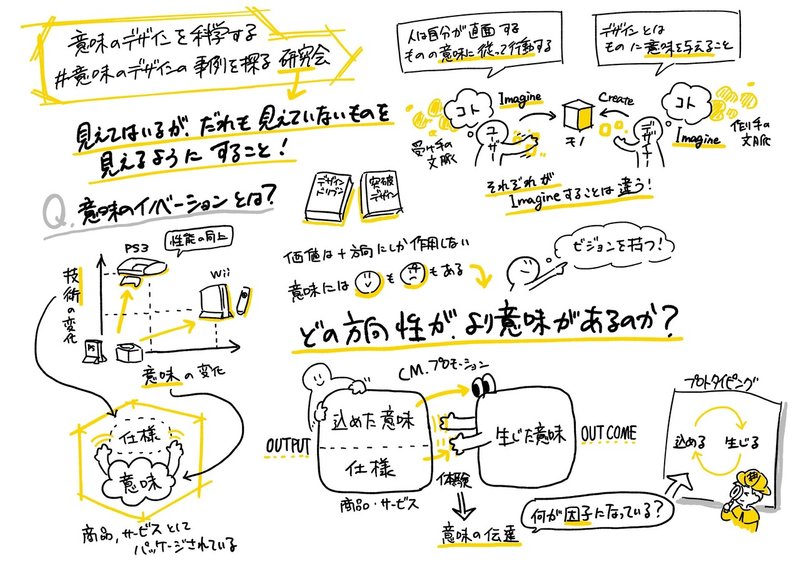 意味のデザインを科学する
#意味のデザインの事例を探る 研究会
見えてはいるが、だれも見えていないものを
見えるようにすること!
人は自分が直面する
ものの意味に従って行動する
デザインとは
ものに意味を与えること
コト
Imagine
ユーザー
受け手の
文脈
モノ
Create
デザイナー
コト
Imagine
作り手の
文脈
それぞれが
Imagineすることは違う!
Q. 意味のイノベーションとは?
デザイン
ドリブン
突破
デザイン
技術の変化
PS3
性能の向上
Wii
PS
意味の変化
価値は+方向にしか作用しない
意味には も もある
ビジョンを持つ!
どの方向性が、より意味があるのか?
仕様
意味
商品、サービスとして
パッケージされている
CM、プロモーション
OUTPUT
込めた意味
仕様
商品・サービス
体験
意味の伝達
生じた意味
OUTCOME
何が因子になっている?
プロトタイピング
込める
生じる